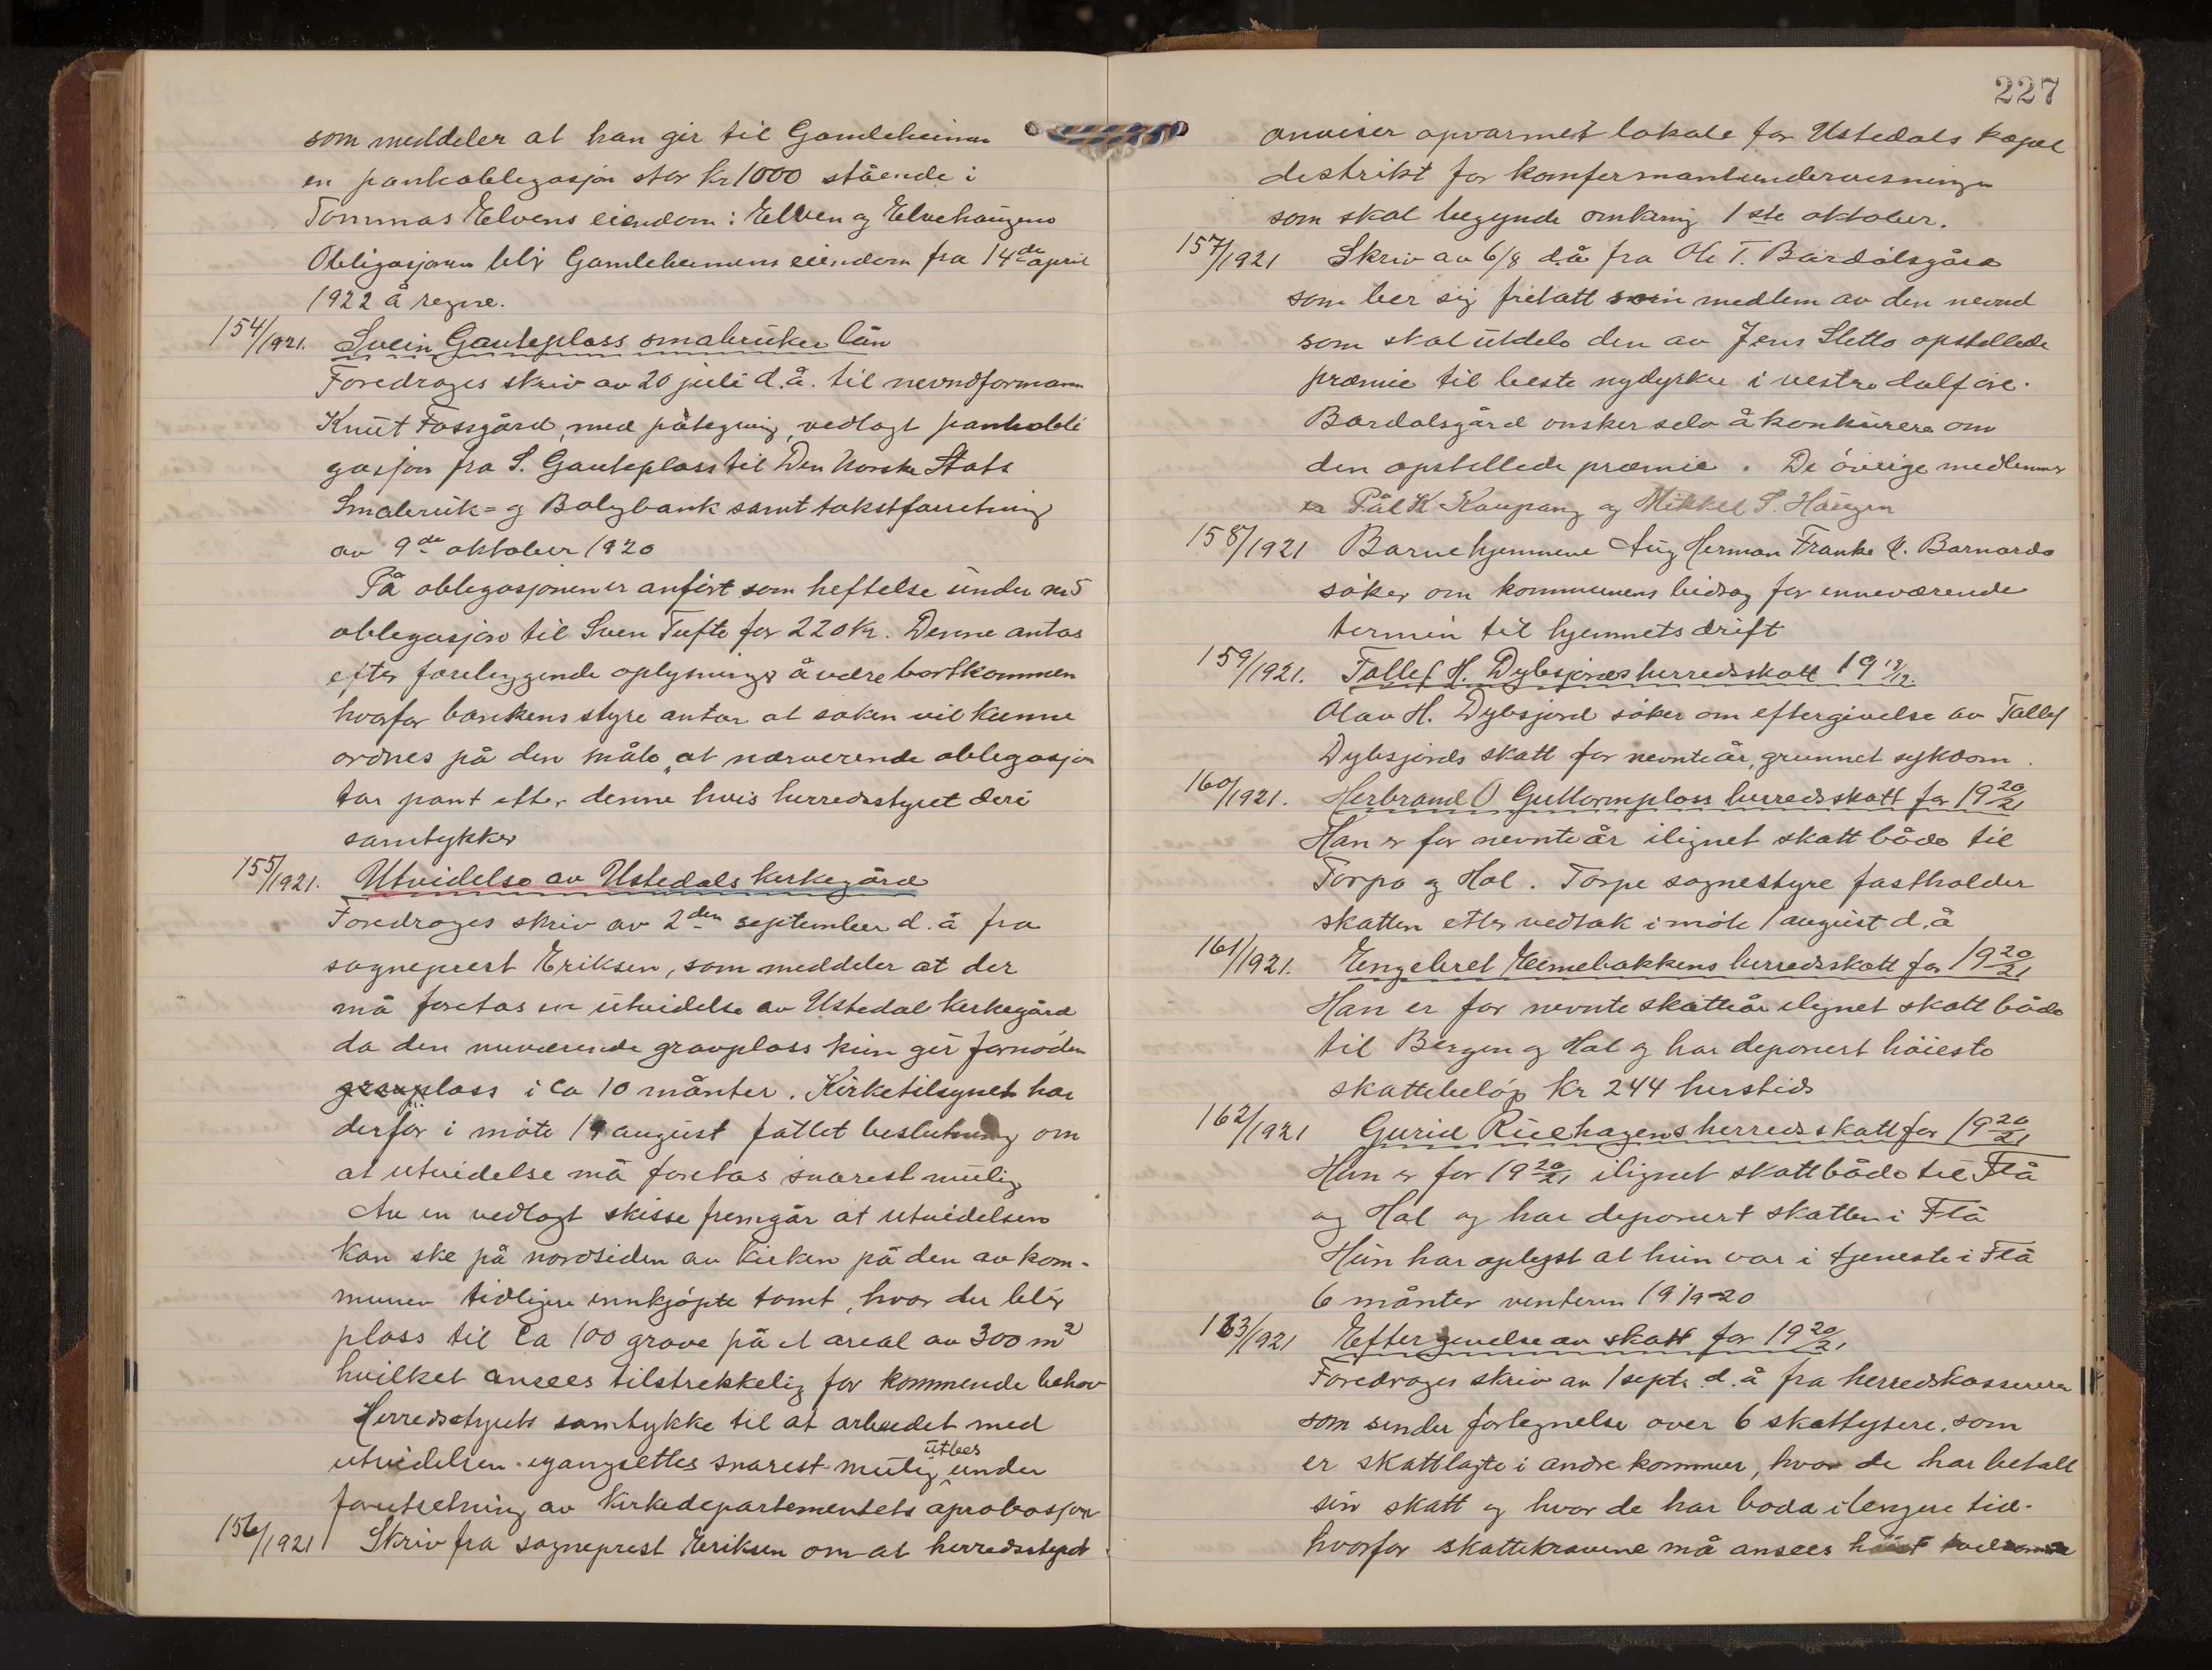 som meddeler at han gir til Gamleheimen
en pantobligasjon stor kr 1000 stående i
Tommas Elvens eiendom: Elven og Elvehaugen
Obligasjonen blir Gamleheimens eiendom fra 14de april
1922 å regne.
154/1921. Svein Gauteplass småbruker lån
Foredrages skriv av 20 juli d.å. til nevndformann
Knut Fossgård, med påtegning, vedlagt pantobli
gasjon fra S. Gauteplass til Den Norske Stats
Småbruk= og Boligbank samt takstforretning
av 9de oktober 1920
På obligasjonen er anført som heftelse under nr 5
obligasjon til Sven Tufte for 220 kr. Denne antas
efter foreliggende oplysninger å være bortkommen
hvorfor bankens styre antar at saken vil kunne
ordnes på den måte, at nærverende obligasjon
tar pant etter denne hvis herredsstyret deri
samtykker
155/1921. Utvidelse av Ustedals kirkegård
Foredrages skriv av 2den september d.å fra
sogneprest Eriksen, som meddeler at der
må foretas en utvidelse av Ustedal kirkegård
da den nuværende gravplass kun gir fornøden
gravplass i ca 10 månter. Kirketilsynet har
derfor i møte 19 august fattet beslutning om
at utvidelse må foretas snarest mulig
Av en vedlagt skisse fremgår at utvidelsen
kan ske på nordsiden av kirken på den av kom-
munen tidligere innkjøpte tomt, hvor der blir
plass til ca 100 grave på et areal av 300 m2
hvilket ansees tilstrekkelig for kommende behov
Herredsstyrets samtykke til at arbeidet med
utvidelsen igangsettes snarest mulig utbes under
forutsetning av kirkedepartementets aprobasjon
156/1921 Skriv fra sogneprest Eriksen om at herredsstyret
227
anviser opvarmet lokale for Ustedals kapel
distrikt for komfermantundervisningen
som skal begynde omkring 1ste oktober.
157/1921 Skriv av 6/8 d.å fra Ole T. Bardålsgård
som ber sig fritatt som medlem av den nevnd
som skal utdele den av Jens Sletto opstillede
premie til beste nydyrker i vestre dalføre.
Bardalsgård ønsker selv å konkurere om
den opstillede premie. De øvrige medlemmer
er Pål K Kaupang og Mikkel S. Haugen
158/1921 Barnehjemmene Aug Herman Franke & Barnardo
søker om kommunens bidrag for inneværende
termin til hjemmets drift
159/1921. Tollef H. Dybsjords herredsskatt 19 12/12.
Olav H. Dybsjord søker om eftergivelse av Tollef
Dybsjords skatt for nevnte år, grunnet sykdom.
160/1921. Herbrand O Guttormsplass herredsskatt for 19 20/21
Han er for nevnte år ilignet skatt både til
Torpo og Hol. Torpe sognestyre fastholder
skatten etter vedtak i møte 1 august d.å
161/1921. Engebret Eimebakkens herredsskatt for 19 20/21
Han er for nevnte skatteår ilignet skatt både
til Bergen og Hol og har deponert høieste
skattebeløp kr 244 herstids
162/1921 Gurid Ruehagens herredsskatt for 19 20/21
Hun er for 19 20/21 ilignet skatt både til Flå
og Hol og har deponert skatten i Flå
Hun har oplyst at hun var i tjeneste i Flå
6 månter vinteren 1919-20
163/1921 Eftergivelse av skatt for 19 20/21
Foredrages skriv av 1 septr. d.å fra herredskassereren
som sender fortegnelse over 6 skattytere, som
er skattlagte i andre kommuner, hvor de har betalt
sin skatt og hvor de har bodd i lengere tid.
hvorfor skattekravene må ansees høist